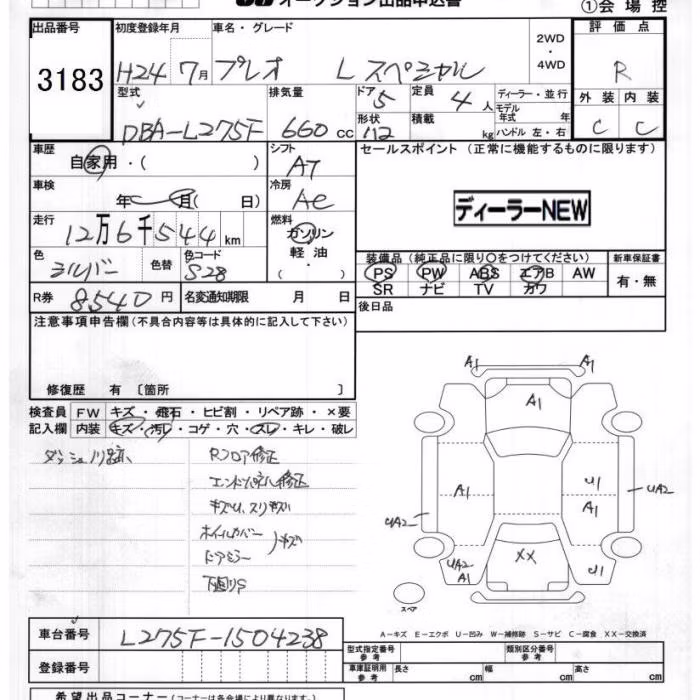 オークション出品申込書
①会場控
出品番号 初度登録年月 車名・グレード 2WD・4WD 評価点
3183
H24 7月 プレオ L スペシャル R
型式 排気量 ドア 5 定員 4人 ディーラー・並行 外装 内装
モデル年式 年
DBA-L275F 660cc 形状 積載 kg ハンドル 左・右 C C
車歴 シフト セールスポイント (正常に機能するものに限ります)
自家用・( ) AT
車検 冷房
年 月( 日) AC
ディーラーNEW
走行 燃料
12万6千544km ガソリン
軽油
・( )
色 色替 色コード
シルバー S28
装備品 (純正品に限り○をつけてください) 新車保証書
PS PW ABS エアB AW 有・無
SR ナビ TV カワ
R券 8540円 名変通知期限 月 日
後日品
注意事項申告欄(不具合内容等は具体的に記入して下さい)
修復歴 有 〔箇所 〕
検査員 FW キズ・飛石・ヒビ割・リペア跡・×要
記入欄 内装 キズ・汚レ・コゲ・穴・スレ・キレ・破レ
Rフロア修正
エンドパネル修正
ホイルカバー
ドアミラー キズ
A1 A1
A1
A1 U1
A1
UA2 UA2
UA2
A1
XX U1
スペア
A-キズ E-エクボ U-凹み W-補修跡 S-サビ C-腐食 XX-交換済
車台番号 L275F-1504238
登録番号
型式指定番号 参考 類別区分番号 参考
車庫証明用 参考 長さ cm 幅 cm 高さ cm
希望出品コーナー(コーナーは各会場により異なります)